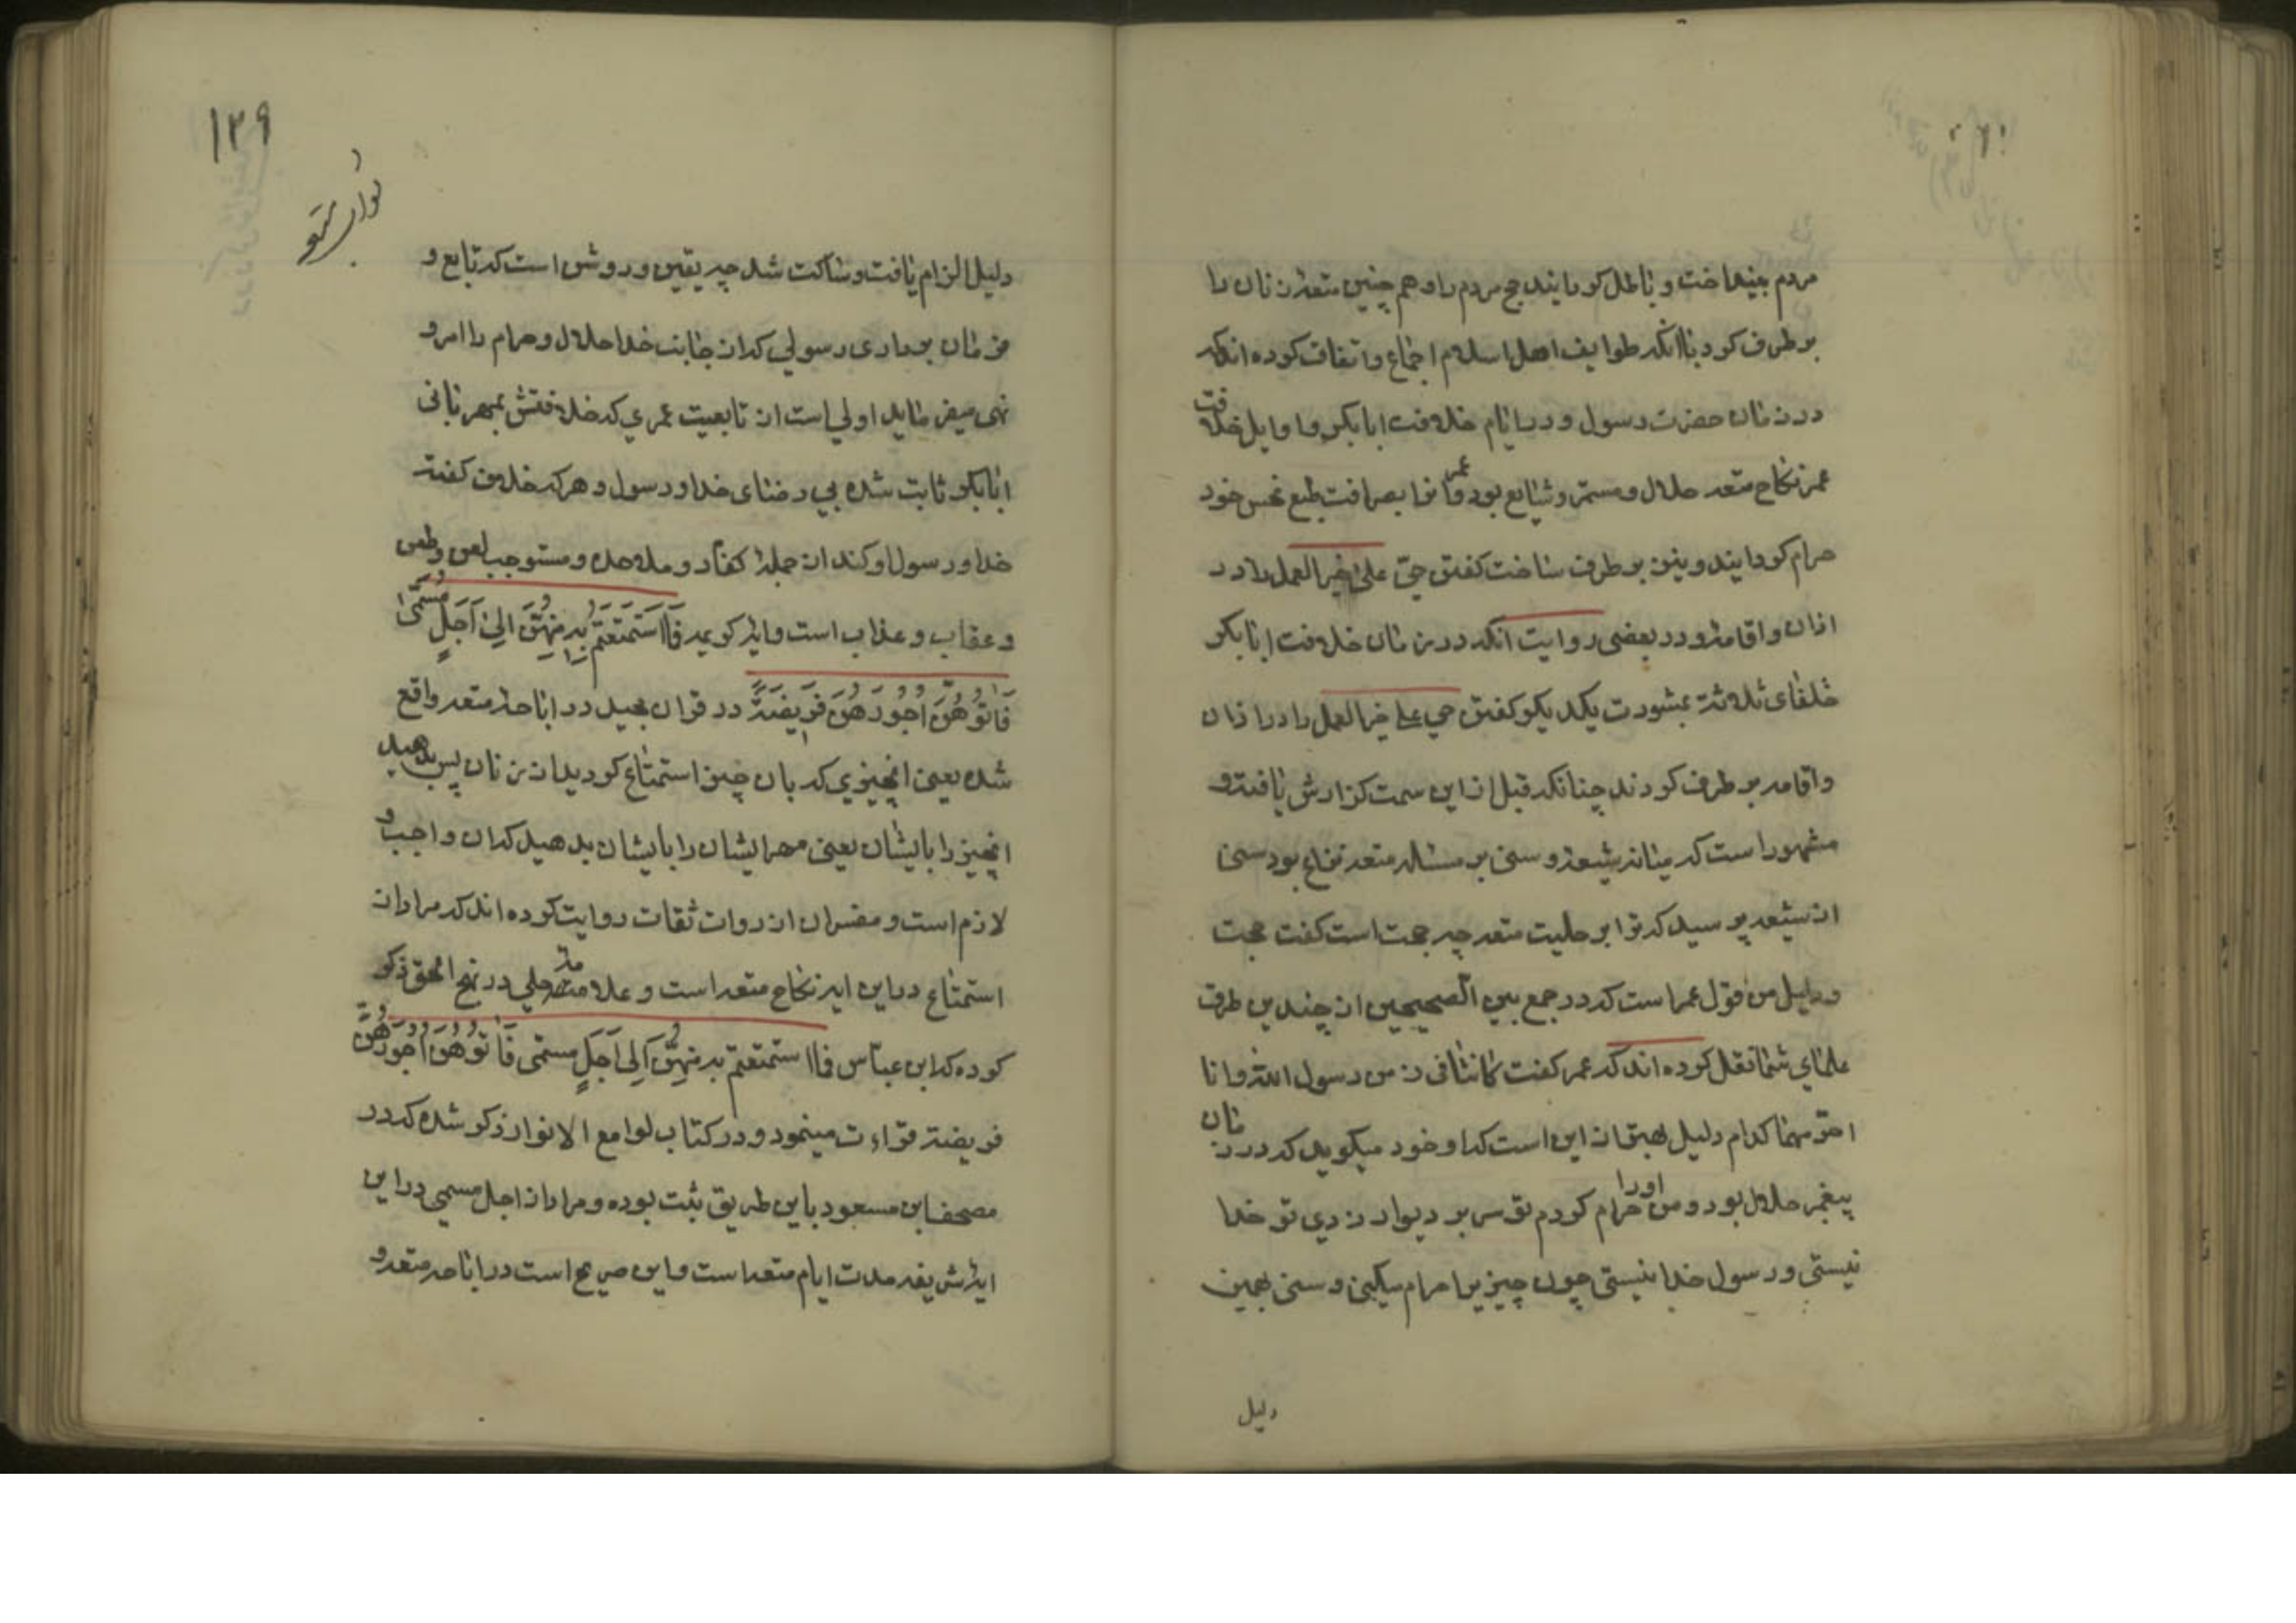 مردم بینداخت و باطل کردانید حج مردم را و هم چنین متعه زنان را
بر طرف کرد با آنکه طوایف اهل اسلام اجماع و اتفاق کرده اند که
در زمان حضرت رسول و در ایام خلافت ابابکر و اوایل خلافت
عمر نکاح متعه حلال و مستمر و شایع بود و عمر انرا بصرافت طبع نحس خود
حرام کردانید و نیز بر طرف ساخت کفتن حیّ علیٰ خیر العمل را در
اذان و اقامه و در بعضی روایت آنکه در زمان خلافت ابابکر
خلفای ثلاثه بمشورت یکدیکر کفتن حی علی خیر العمل را در اذان
و اقامه بر طرف کردند چنانکه قبل از این سمت کزارش یافته و
مشهور است که میانه شیعه و سنی بر مساله متعه نزاع بود سنی
از شیعه پرسید که ترا بر حلیت متعه چه حجت است کفت حجت
و دلیل من قول عمر است که در جمع بین الصحیحین از چندین طرق
علمای شما نقل کرده اند که عمر کفت کانتا فی زمن رسول الله و انا
احرّمهما کدام دلیل بهتر از این است که او خود میکوید که در زمان
پیغمبر حلال بود و من اورا حرام کردم تو سر بر دیوار زدی تو خدا
نیستی و رسول خدا نیستی چون چیزیرا حرام میکنی و سنی بهمین
دلیل
١٣٩
دلیل الزام یافت و ساکت شد چه یقین و روشن است که تابع و
فرمان برداری رسولی که از جانب خدا حلال و حرام را امر و
نهی میفرماید اولی است از تابعیت عمری که خلافتش بمهربانی
ابابکر ثابت شده بی رضای خدا و رسول و هر که خلاف کفته
خدا و رسول او کند از جمله کفار و ملاحده و مستوجب لعن و طعن
و عقاب و عذاب است و ایه کریمه فَااسْتَمْتَعْتُمْ بِهِ مِنْهُنَّ اِلیٰ اَجَلٍ مُسَمّیً
فَاٰتُوهُنَّ اُجُورَهُنَّ فَرِیضَةً در قران مجید در اباحه متعه واقع
شده یعنی انچیزی که بان چیز استمتاع کردید از زنان پس بدهید
انچیز را بایشان یعنی مهر ایشان را بایشان بدهید که ان واجب و
لازم است و مفسران از روات ثقات روایت کرده اند که مراد از
استمتاع در این ایه نکاح متعه است و علامه حلی در نهج الحق ذکر
کرده که ابن عباس فااستمتعتم به منهنّ اِلی اَجَلٍ مسمّی فَاٰتُوهُنَّ اُجُورَهُنَّ
فریضة قراءت مینمود و در کتاب لوامع الانوار ذکر شده که در
مصحف ابن مسعود باین طریق ثبت بوده و مراد از اجل مسمی در این
ایه شریفه مدت ایام متعه است و این صریح است در اباحه متعه و